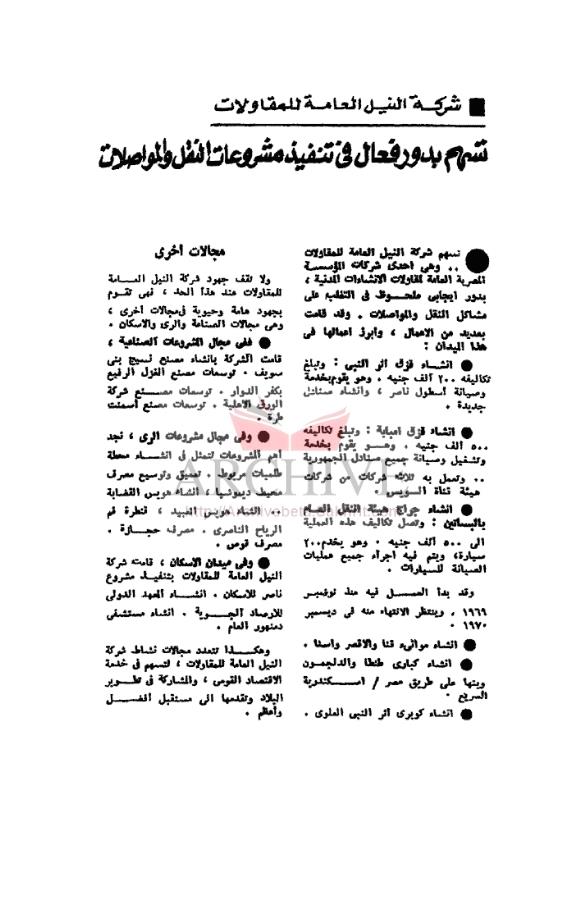 شركة النيل العامة للمقاولات
تسهم بدور فعال فى تنفيذ مشروعات النقل والمواصلات
تسهم شركة النيل العامة للمقاولات
.. وهى احدى شركات المؤسسة
المصرية العامة لمقاولات الانشاءات المدنية ،
بدور ايجابى ملحوظ فى التغلب على
مشاكل النقل والمواصلات . وقد قامت
بعديد من الاعمال ، وابرز اعمالها فى
هذا الميدان :
● انشاء قزق اثر النبى : وتبلغ
تكاليفه ٢٠٠ ألف جنيه ، وهو يقوم بخدمة
وصيانة أسطول ناصر ، وانشاء صنادل
جديدة .
● انشاء قزق امبابة : وتبلغ تكاليفه
٥٠٠ الف جنيه . وهو يقوم بخدمة
وتشغيل وصيانة جميع صنادل الجمهورية
.. وتعمل به ثلاث شركات من شركات
هيئة قناة السويس .
● انشاء جراج هيئة النقل العام
بالبساتين : وتصل تكاليف هذه العملية
الى ٥٠٠ ألف جنيه . وهو يخدم ٢٠٠
سيارة، ويتم فيه اجراء جميع عمليات
الصيانة للسيارات .
وقد بدأ العمل فيه منذ نوفمبر
١٩٦٩ ، وينتظر الانتهاء منه فى ديسمبر
١٩٧٠ .
● انشاء موانىء قنا والاقصر واسنا .
● انشاء كبارى طنطا والدلجمون
وبنها على طريق مصر / اسكندرية
السريع .
● انشاء كوبرى اثر النبى العلوى .
مجالات أخرى
ولا تقف جهود شركة النيل العامة
للمقاولات عند هذا الحد ، فهى تقوم
بجهود هامة وحيوية فى مجالات أخرى ،
وهى مجالات الصناعة والرى والاسكان .
● ففى مجال المشروعات الصناعية ،
قامت الشركة بانشاء مصنع نسيج بنى
سويف . توسعات مصنع الغزل الرفيع
بكفر الدوار . توسعات مصنع شركة
الورق الاهلية . توسعات مصنع أسمنت
طرة .
● وفى مجال مشروعات الرى ، نجد
أهم المشروعات تتمثل فى انشاء محطة
طلمبات مريوط . تعميق وتوسيع مصرف
محيط ديمونيا ، انشاء هويس القضابة
.. انشاء هويس العبيد ، قنطرة فم
الرياح الناصرى . مصرف حجازة .
مصرف قوص .
● وفى ميدان الاسكان ، قامت شركة
النيل العامة للمقاولات بتنفيذ مشروع
ناصر للاسكان . انشاء المعهد الدولى
للارصاد الجوية . انشاء مستشفى
دمنهور العام .
وهكذا تتعدد مجالات نشاط شركة
النيل العامة للمقاولات ، لتسهم فى خدمة
الاقتصاد القومى ، والمشاركة فى تطوير
البلاد وتقدمها الى مستقبل أفضل
وأعظم .
ARCHIVE